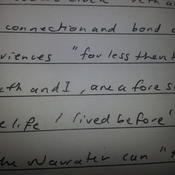 connection and bond
riences "for less then
th and I, are a fore s
e life I lived before"
the Narrator can "t